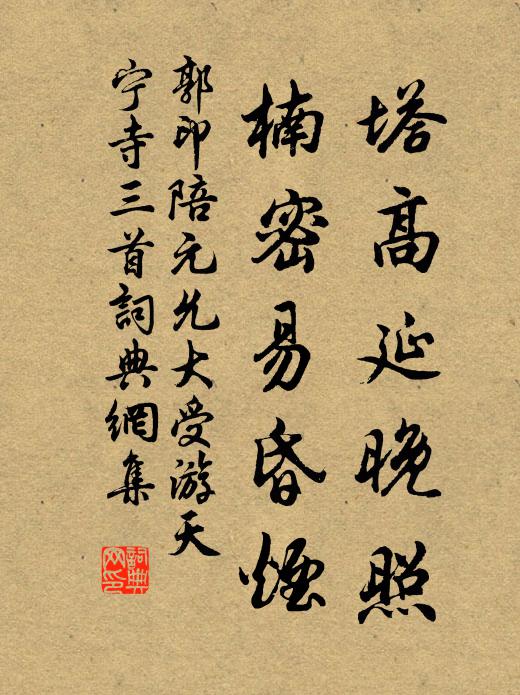 塔高延晚照
楠密易昏煙
郭印陪元允大受游天
宁寺三首詞典網集
詞典
网印